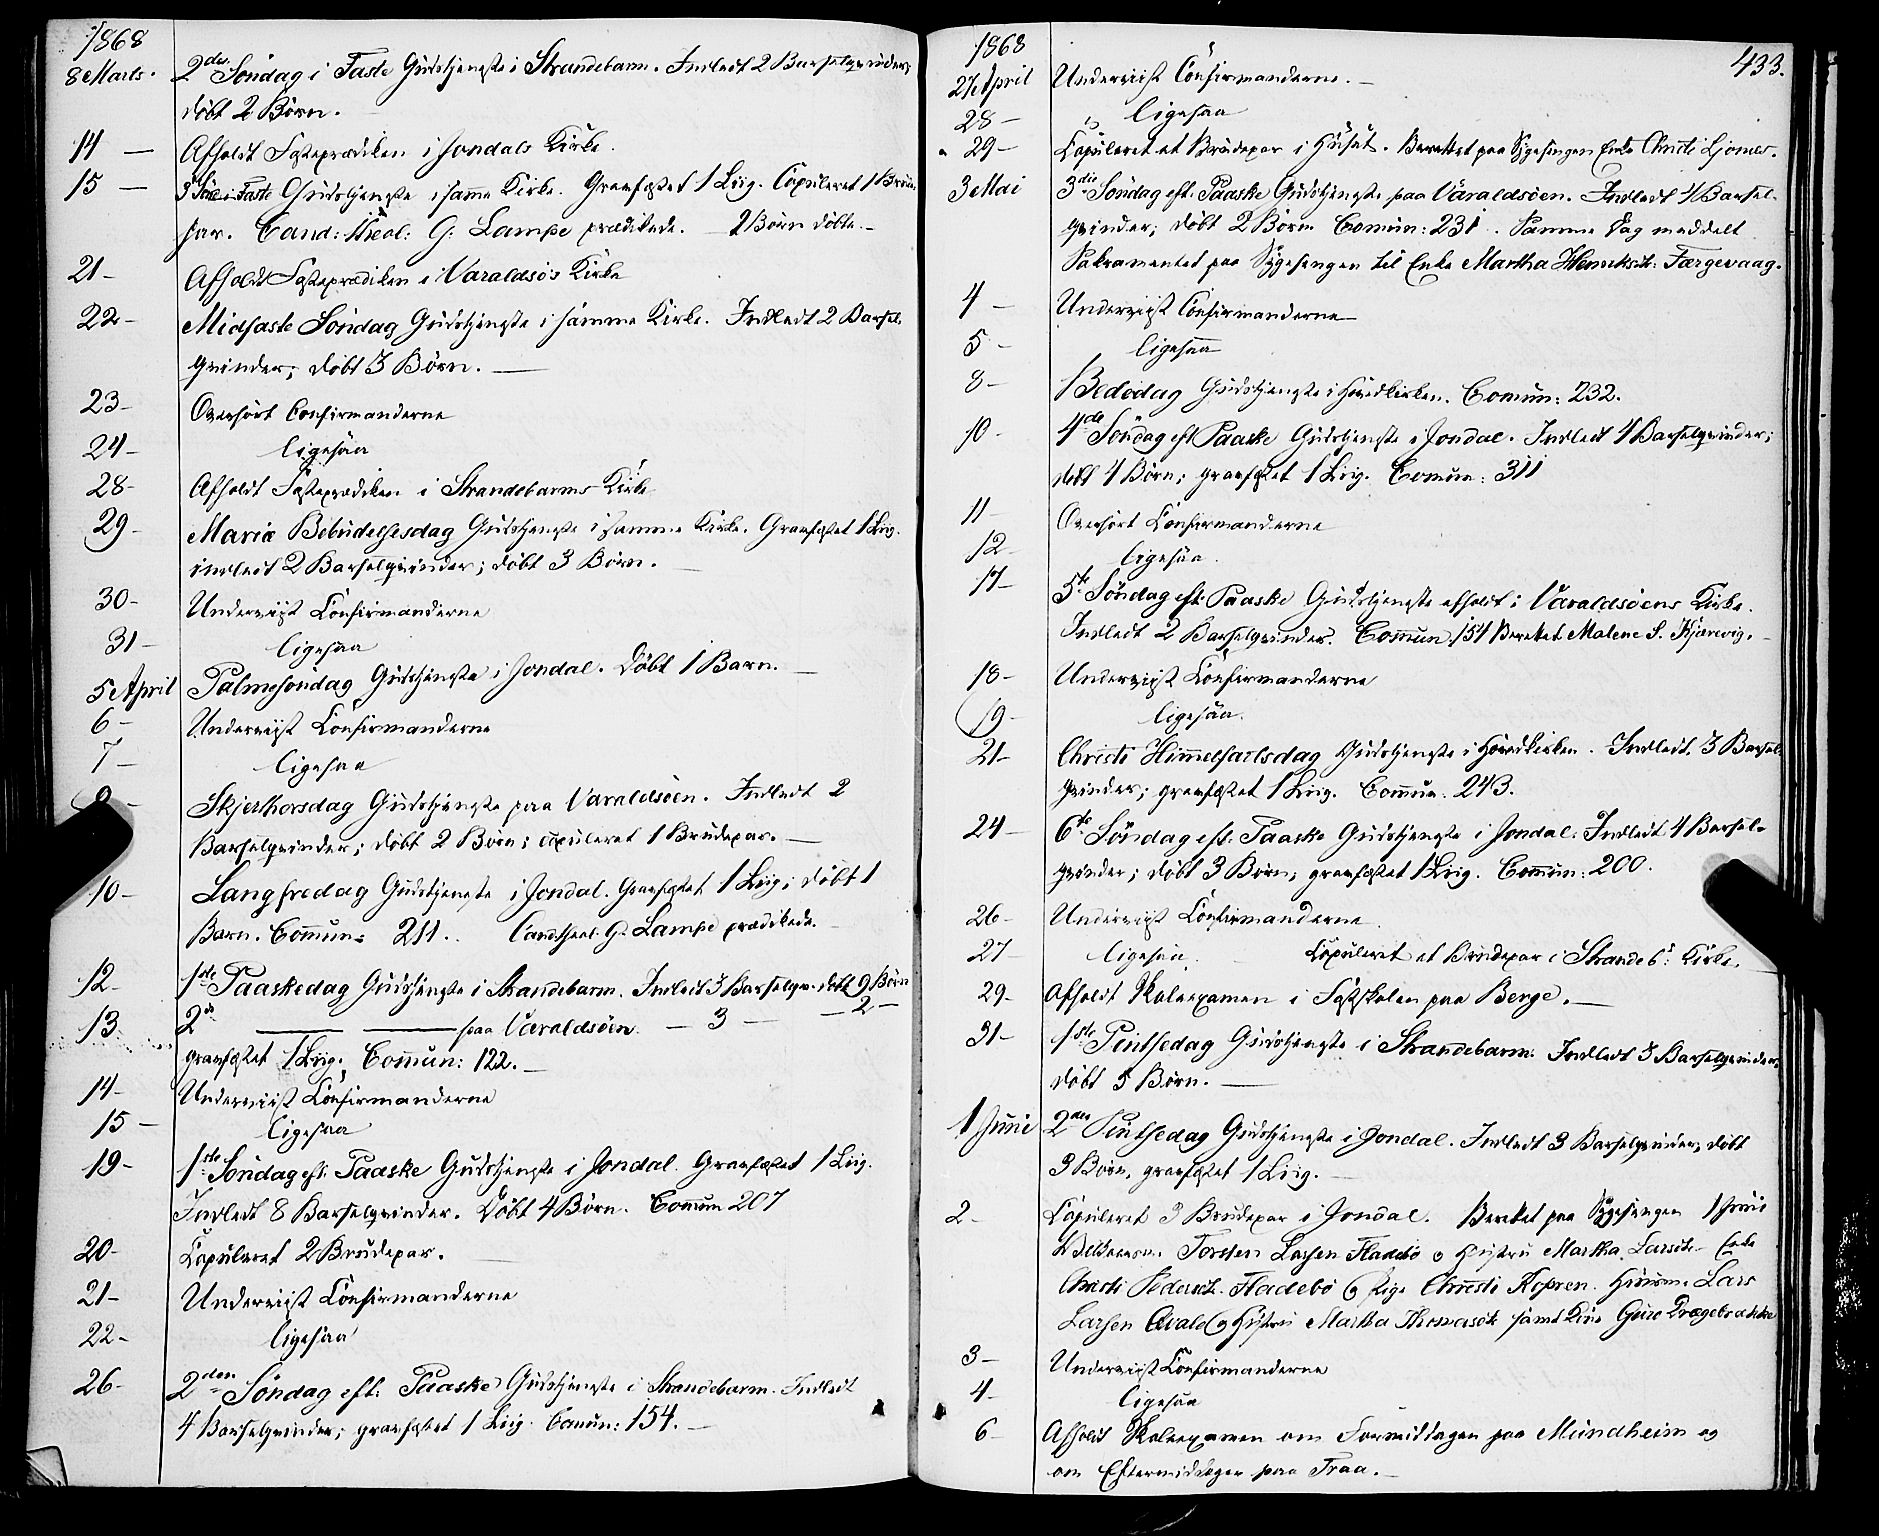 1868
8 Marts. 2den Søndag i Faste Gudstjeneste i Strandebarm. Indledt 2 Barselqvinder,
døbt 2 Børn.
14 — Afholdt Fasteprædiken i Jondals Kirke.
15 — 3die Sø. i Faste Gudstjeneste i samme Kirke. Gravfæstet 1 Liig. Copuleret 1 Brude-
par. Cand: theol: G. Lampe prædikede. 2 Børn døbte.—
21 — Afholdt Fasteprædiken i Varaldsøs Kirke
22 — Midfaste Søndag Gudstjeneste i samme Kirke. Indledt 2 Barsel-
qvinder; døbt 3 Børn. —
23 — Overhørt Confirmanderne
24 — ligesaa
28 — Afholdt Fasteprædiken i Strandebarms Kirke
29 — Mariæ Bebudelsesdag Gudstjeneste i samme Kirke. Gravfæstet 1 Liig.
indledt 2 Barselqvinder; døbt 3 Børn. —
30 — Underviist Confirmanderne
31 — ligesaa
5 April Palmesøndag Gudstjeneste i Jondal. Døbt 1 Barn. —
6 — Underviist Confirmanderne
7 — ligesaa
9 — Skjerthorsdag Gudstjeneste paa Varaldsøen. Indledt 2
Barselqvinder; døbt 2 Børn; copuleret 1 Brudepar. —
10 — Langfredag Gudstjeneste i Jondal. Gravfæstet 1 Liig; døbt 1
Barn. Commun: 211. Cand theol. G. Lampe prædikede.
12 — 1ste Paaskedag Gudstjeneste i Strandebarm. Indledt 3 Barselqv. døbt 9 Børn
13 — 2den — — paa Varaldsøen. — 3 — — 2 —
gravfæstet 1 Liig. Commun: 122. —
14 — Underviist Confirmanderne
15 — ligesaa
19 — 1ste Søndag eft: Paaske Gudstjeneste i Jondal. Gravfæstet 1 Liig.
Indledt 8 Barselqvinder. Døbt 4 Børn. Commun 207
20 — Copuleret 2 Brudepar.
21 — Underviist Confirmanderne
22 — ligesaa
26 — 2den Søndag eft: Paaske Gudstjeneste i Strandebarm. Indledt
4 Barselqvinder; gravfæstet 1 Liig. Comun: 154. —
1868 433.
27 April Underviist Confirmanderne. —
28 — ligesaa
29 — Copuleret et Brudepar i Huset. Berettet paa Sygesengen Enke Christi Ljones.
3 Mai 3die Søndag eft. Paaske Gudstjeneste paa Varaldsøen. Indledt 4 Barsel-
qvinder; døbt 2 Børn Comun: 231. Samme Dag meddelt
Sakramentet paa Sygesengen til Enke Martha Henriksdt: Færgevaag.
4 — Underviist Confirmanderne
5 — ligesaa
8 — Bededag Gudstjeneste i Hovedkirken. Comun: 232.
10 — 4de Søndag eft Paaske Gudstjeneste i Jondal. Indledt 4 Barselqvinder;
døbt 4 Børn; gravfæstet 1 Liig. Comun: 311
11 — Overhørt Confirmanderne
12 — ligesaa.
17 — 5te Søndag eft. Paaske Gudstjeneste afholdt i Varaldsøens Kirke.
Indledt 2 Barselqvinder. Commun. 151 Berettet Malene S. Kjærevig. —
18 — Underviist Confirmanderne
19 — ligesaa.
21 — Christi Himmelfartsdag Gudstjeneste i Hovedkirken. Indledt 3 Barsel-
qvinder; gravfæstet 1 Liig. Comun. 243.
24 — 6te Søndag eft. Paaske Gudstjeneste i Jondal. Indledt 4 Barsel-
qvinder; døbt 3 Børn; gravfæstet 1 Liig. Commun: 200.
26 — Underviist Confirmanderne
27 — ligesaa. Copuleret et Brudepar i Strandeb: Kirke.
29 — Afholdt Skoleexamen i Fastskolen paa Berge. —
31 — 1ste Pintsedag Gudstjeneste i Strandebarm. Indledt 3 Barselqvinder
døbt 5 Børn. —
1 Juni 2den Pintsedag Gudstjeneste i Jondal. Indledt 3 Barselqvinder, døbt
3 Børn, gravfæstet 1 Liig. —
2 — Copuleret 3 Brudepar i Jondal. Berettet paa Sygesengen 1 Juni
Torsten Larsen Fladebø og Hustru Martha Larsdt. Enke
Christi Pedersdt. Fladebø og Pige Christi Kopren. Huusm. Lars
Larsen Qvale og Hustru Martha Thomasdt samt Guro Drægebrække
3 — Underviist Confirmanderne
4 — ligesaa
6 — Afholdt Skoleexamen om Formiddagen paa Mundheim og
om Eftermiddagen paa Traa. —